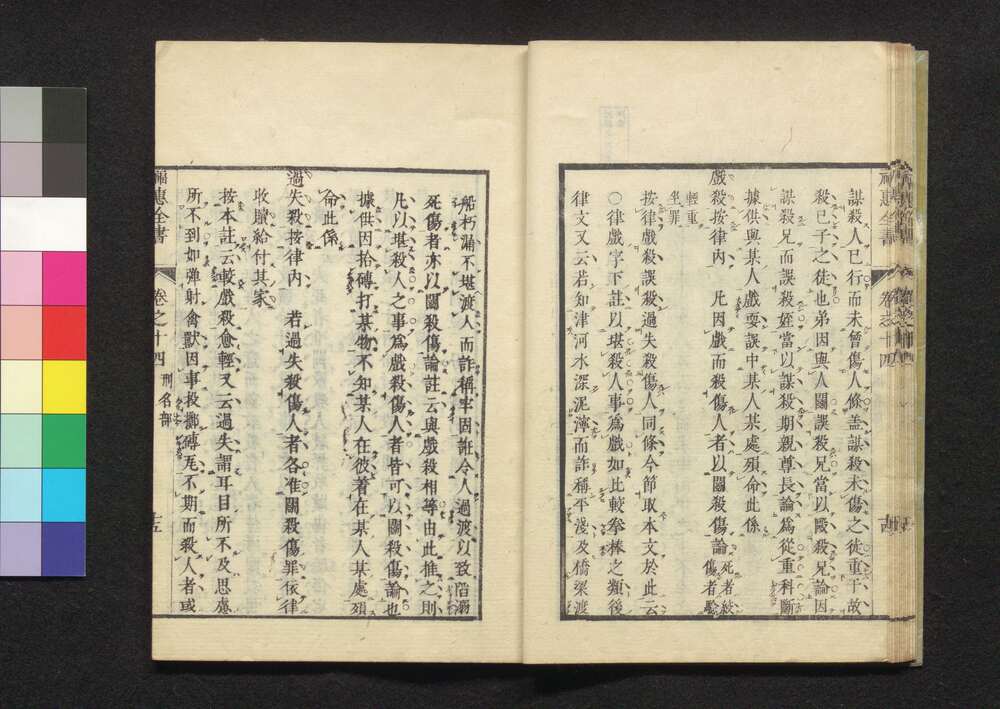 謀殺人已行而未曾傷人條盖謀殺未傷之徒重于故
殺已子之徒也弟因與人鬬誤殺兄當以毆殺兄論因
謀殺兄而誤殺姪當以謀殺期親尊長論爲從重科斷
據供與某人戲耍誤中某人某處殞命此係
戲殺按律内　凡因戲而殺傷人者以鬬殺傷論
死者絞
傷者驗
輕重
坐罪
按律戲殺誤殺過失殺傷人同條今節取本文於此云
○律戲字下註以堪殺人事爲戲如此較拳棒之類後
律文又云若知津河水深泥濘而詐稱平淺及橋梁渡
船朽漏不堪渡人而詐稱牢固誑令人過渡以致陷溺
死傷者亦以鬬殺傷論註云與戲殺相等由此推之則
凡以堪殺人之事爲戲殺傷人者皆可以鬬殺傷論也
據供因拾磚打某物不知某人在彼着在某人某處殞
命此係
過失殺按律内　若過失殺傷人者各准鬬殺傷罪依律
收贖給付其家
按本註云較戲殺愈輕又云過失謂耳目所不及思慮
所不到如弹射禽獸因事投擲磚瓦不期而殺人者或
福惠全書
卷之十四
刑名部
十五